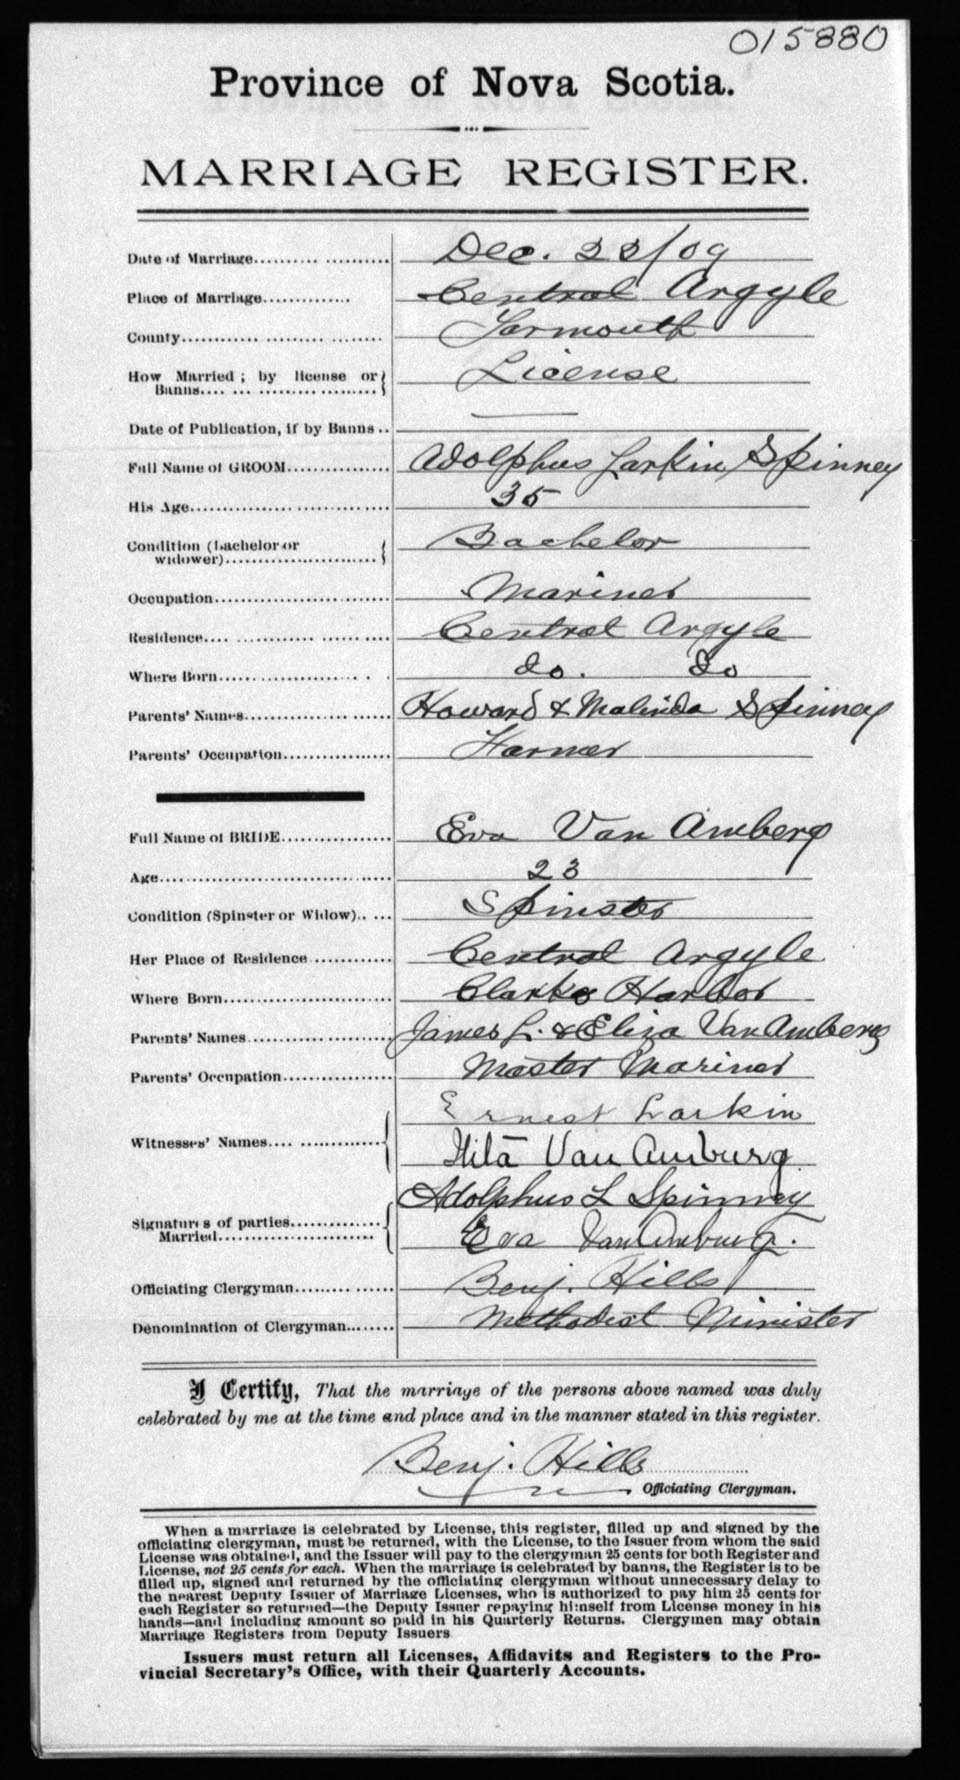 015880
Province of Nova Scotia.
MARRIAGE REGISTER.
Date of Marriage.......... Dec. 22/09
Place of Marriage............. Central Argyle
County............ Yarmouth
How Married; by license or Banns.... License
Date of Publication, if by Banns .. —
Full Name of GROOM............ Adolphus Larkin Spinney
His Age............ 35
Condition (Bachelor or widower)............ Bachelor
Occupation............ Mariner
Residence.... Central Argyle
Where Born............ do. do
Parents' Names............ Howard & Malinda Spinney
Parents' Occupation............ Farmer
Full Name of BRIDE............ Eva Van Amberg
Age............ 23
Condition (Spinster or Widow).. ... Spinster
Her Place of Residence ............ Central Argyle
Where Born............ Clarks Harbor
Parents' Names............ James L. & Eliza Van Amberg
Parents' Occupation............ Master Mariner
Witnesses' Names.... Ernest Larkin
Hita Van Amburg
Signatures of parties Married............ Adolphus L Spinney
Eva Van Amburg.
Officiating Clergyman............ Benj. Hills
Denomination of Clergyman........ Methodist Minister
I Certify, That the marriage of the persons above named was duly
celebrated by me at the time and place and in the manner stated in this register.
Benj. Hills
Officiating Clergyman.
When a marriage is celebrated by License, this register, filled up and signed by the
officiating clergyman, must be returned, with the License, to the Issuer from whom the said
License was obtained, and the Issuer will pay to the clergyman 25 cents for both Register and
License, not 25 cents for each. When the marriage is celebrated by banns, the Register is to be
filled up, signed and returned by the officiating clergyman without unnecessary delay to
the nearest Deputy Issuer of Marriage Licenses, who is authorized to pay him 25 cents for
each Register so returned—the Deputy Issuer repaying himself from License money in his
hands—and including amount so paid in his Quarterly Returns. Clergymen may obtain
Marriage Registers from Deputy Issuers
Issuers must return all Licenses, Affidavits and Registers to the Pro-
vincial Secretary's Office, with their Quarterly Accounts.